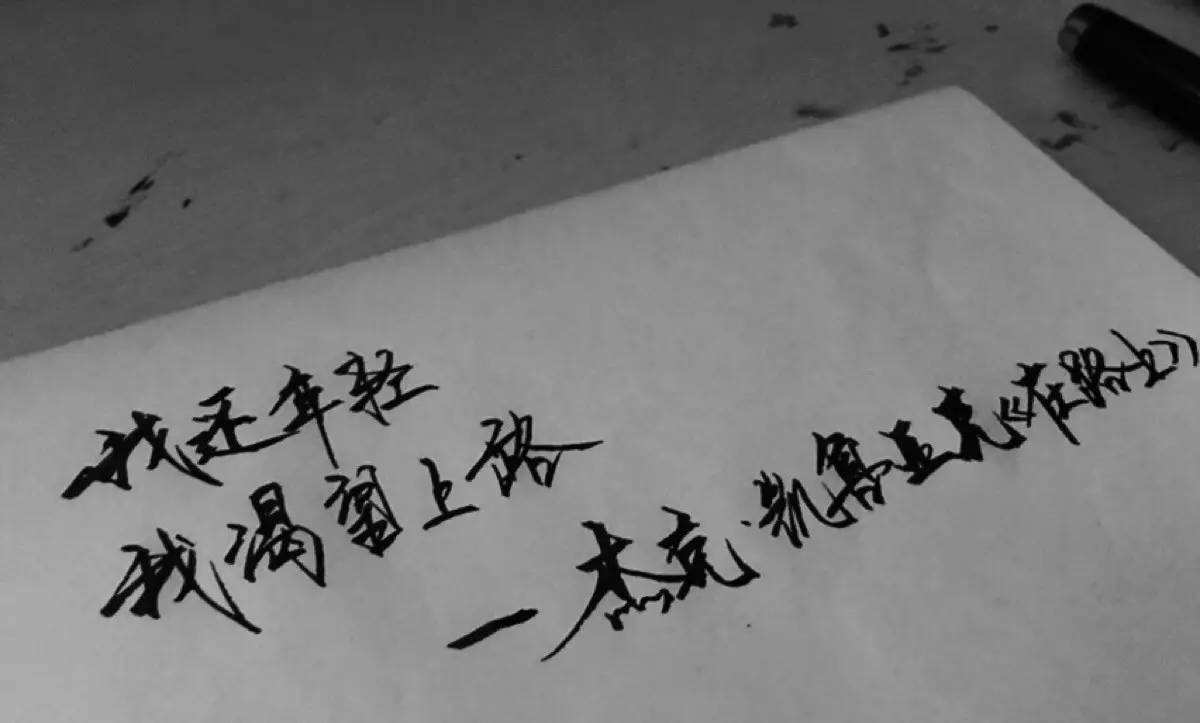 我还年轻
我渴望上路
—杰克·凯鲁亚克《在路上》